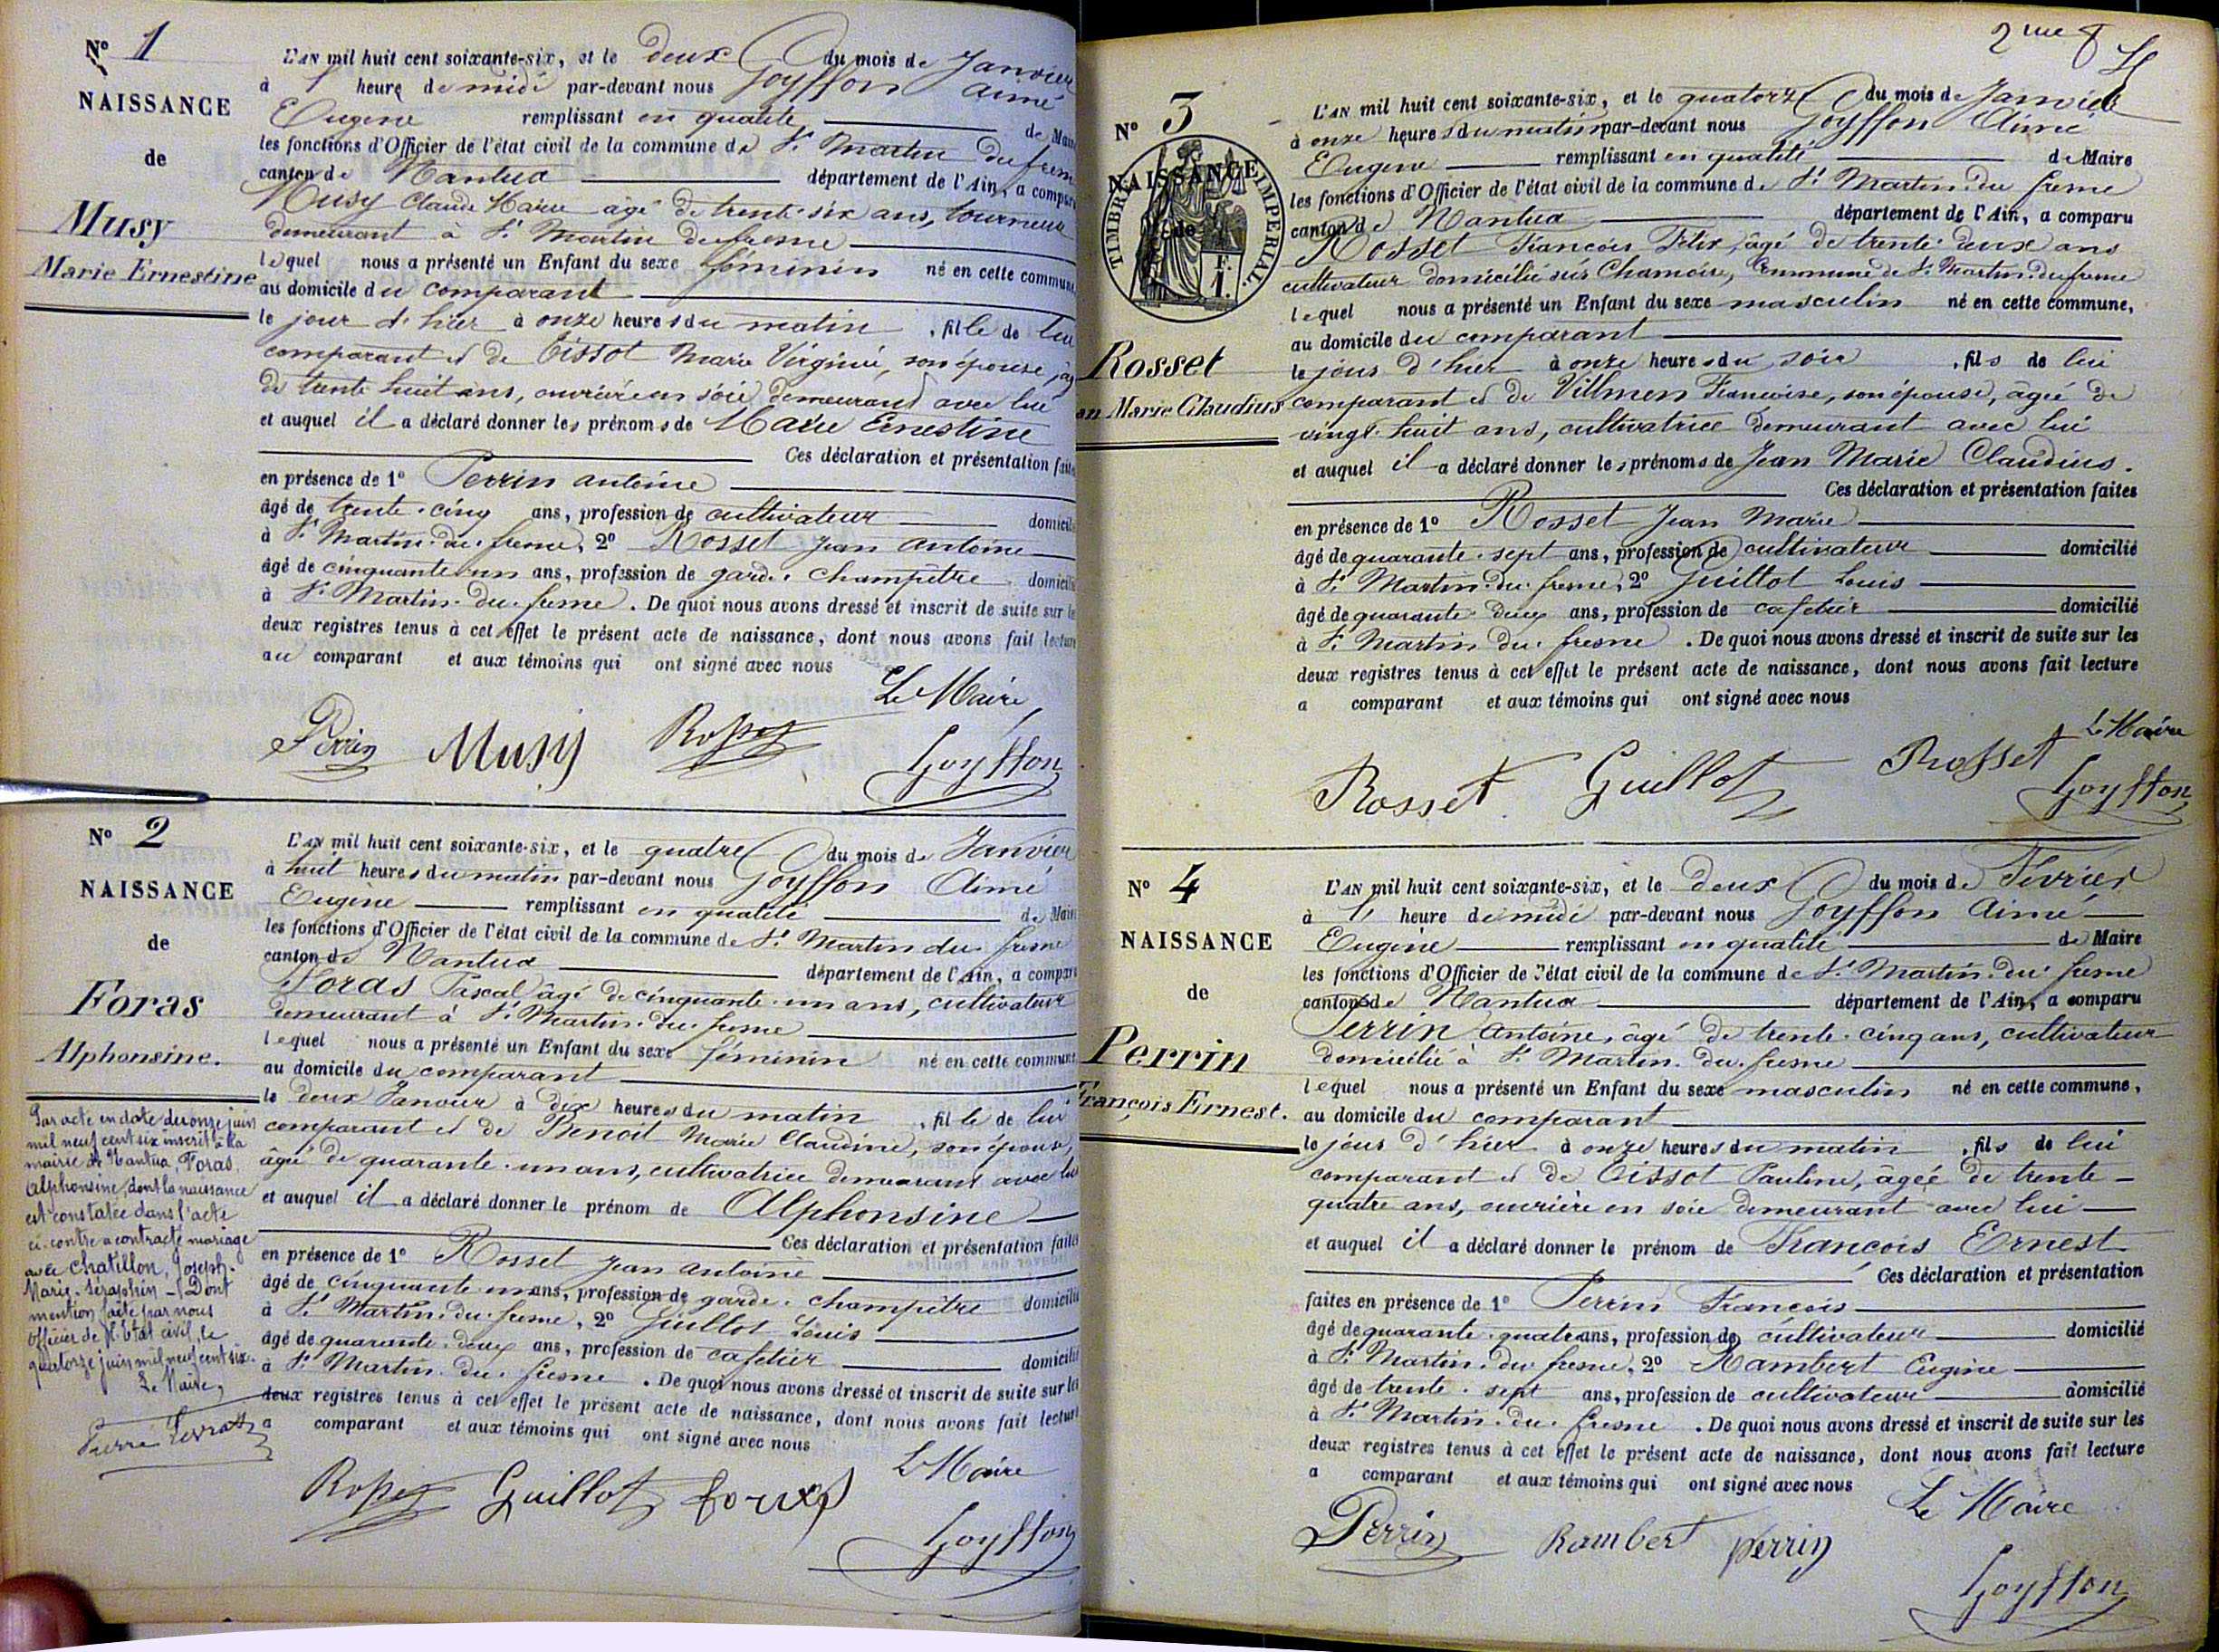 N° 1
NAISSANCE
de
Musy
Marie Ernestine
L'AN mil huit cent soixante-six, et le deux du mois de Janvier
à 1 heure de midi par-devant nous Goyffon Aimé
Eugene remplissant en qualité de Maire
les fonctions d'Officier de l'état civil de la commune de St Martin du fresne
canton de Nantua département de l'Ain, a comparu
Musy Claude Marie âgé de trente six ans, tourneur
demeurant à St Martin du fresne
lequel nous a présenté un Enfant du sexe féminin né en cette commune,
au domicile du comparant
le jour d'hier à onze heures du matin, fille de lui
comparant et de Tissot Marie Virginie, son épouse, âgé
de trente huit ans, ouvrière en soie demeurant avec lui
et auquel il a déclaré donner les prénoms de Marie Ernestine
Ces déclaration et présentation faites
en présence de 1° Perrin antoine
âgé de trente-cinq ans, profession de cultivateur domicilié
à St Martin-du-fresne, 2° Rosset Jean antoine
âgé de cinquante un ans, profession de garde-champêtre domicilié
à St Martin-du-fresne. De quoi nous avons dressé et inscrit de suite sur les
deux registres tenus à cet effet le présent acte de naissance, dont nous avons fait lecture
au comparant et aux témoins qui ont signé avec nous
Le Maire
Perrin Musy Rosset Goyffon
N° 2
NAISSANCE
de
Foras
Alphonsine.
L'AN mil huit cent soixante-six, et le quatre du mois de Janvier
à huit heures du matin par-devant nous Goyffon Aimé
Eugène remplissant en qualité de Maire
les fonctions d'Officier de l'état civil de la commune de St Martin du fresne
canton de Nantua département de l'Ain, a comparu
Foras Pascal âgé de cinquante-un ans, cultivateur
demeurant à St Martin-du-fresne
lequel nous a présenté un Enfant du sexe féminin né en cette commune
au domicile du comparant
le deux Janvier à dix heures du matin, fille de lui
comparant et de Benoit Marie Claudine, son épouse,
âgée de quarante-un ans, cultivatrice demeurant avec lui
et auquel il a déclaré donner le prénom de Alphonsine
Ces déclaration et présentation faites
en présence de 1° Rosset Jean antoine
âgé de cinquante un ans, profession de garde-champêtre domicilié
à St Martin-du-fresne, 2° Guillot Louis
âgé de quarante-deux ans, profession de cafetier domicilié
à St Martin-du-fresne. De quoi nous avons dressé et inscrit de suite sur les
deux registres tenus à cet effet le présent acte de naissance, dont nous avons fait lecture
a comparant et aux témoins qui ont signé avec nous
Le Maire
Rosset Guillot foras Goyffon
Par acte en date du onze juin
mil neuf cent six inscrit à la
mairie de Nantua, Foras
Alphonsine, dont la naissance
est constatée dans l'acte
ci-contre a contracté mariage
avec Chatillon, Joseph-
Marie-Séraphin - Dont
mention faite par nous
Officier de l'Etat civil, le
quatorze juin mil neuf cent six.
Le Maire,
Pierre
2me f
N° 3
NAISSANCE
de
TIMBRE IMPERIAL
Rosset
an Marie Claudius
L'AN mil huit cent soixante-six, et le quatorze du mois de Janvier
à onze heures du matin par-devant nous Goyffon Aimé
Eugene remplissant en qualité de Maire
les fonctions d'Officier de l'état civil de la commune de St Martin-du fresne
canton de Nantua département de l'Ain, a comparu
Rosset François Félix, âgé de trente-deux ans
cultivateur domicilié sur Chamoise, Commune de St Martin-du fresne
lequel nous a présenté un Enfant du sexe masculin né en cette commune,
au domicile du comparant
le jour d'hier à onze heures du soir, fils de lui
comparant et de Villmen Françoise, son épouse, âgée de
vingt-huit ans, cultivatrice demeurant avec lui
et auquel il a déclaré donner les prénoms de Jean Marie Claudius.
Ces déclaration et présentation faites
en présence de 1° Rosset Jean Marie
âgé de quarante-sept ans, profession de cultivateur domicilié
à St Martin-du-fresne, 2° Guillot Louis
âgé de quarante-deux ans, profession de cafetier domicilié
à St Martin du-fresne. De quoi nous avons dressé et inscrit de suite sur les
deux registres tenus à cet effet le présent acte de naissance, dont nous avons fait lecture
a comparant et aux témoins qui ont signé avec nous
Le Maire
Rosset Guillot Rosset Goyffon
N° 4
NAISSANCE
de
Perrin
François Ernest.
L'AN mil huit cent soixante-six, et le deux du mois de Février
à 1 heure de midi par-devant nous Goyffon Aimé
Eugène remplissant en qualité de Maire
les fonctions d'Officier de l'état civil de la commune de St Martin-du-fresne
canton de Nantua département de l'Ain, a comparu
Perrin Antoine, âgé de trente-cinq ans, cultivateur
domicilié à St Martin-du-fresne
lequel nous a présenté un Enfant du sexe masculin né en cette commune,
au domicile du comparant
le jour d'hier à onze heures du matin, fils de lui
comparant et de Tissot Pauline, âgée de trente-
quatre ans, ouvrière en soie demeurant avec lui
et auquel il a déclaré donner le prénom de François Ernest
Ces déclaration et présentation
faites en présence de 1° Perrin François
âgé de quarante-quatre ans, profession de cultivateur domicilié
à St Martin-du fresne, 2° Rambert Eugène
âgé de trente-sept ans, profession de cultivateur domicilié
à St Martin-du-fresne. De quoi nous avons dressé et inscrit de suite sur les
deux registres tenus à cet effet le présent acte de naissance, dont nous avons fait lecture
a comparant et aux témoins qui ont signé avec nous
Le Maire
Perrin Rambert perrin Goyffon